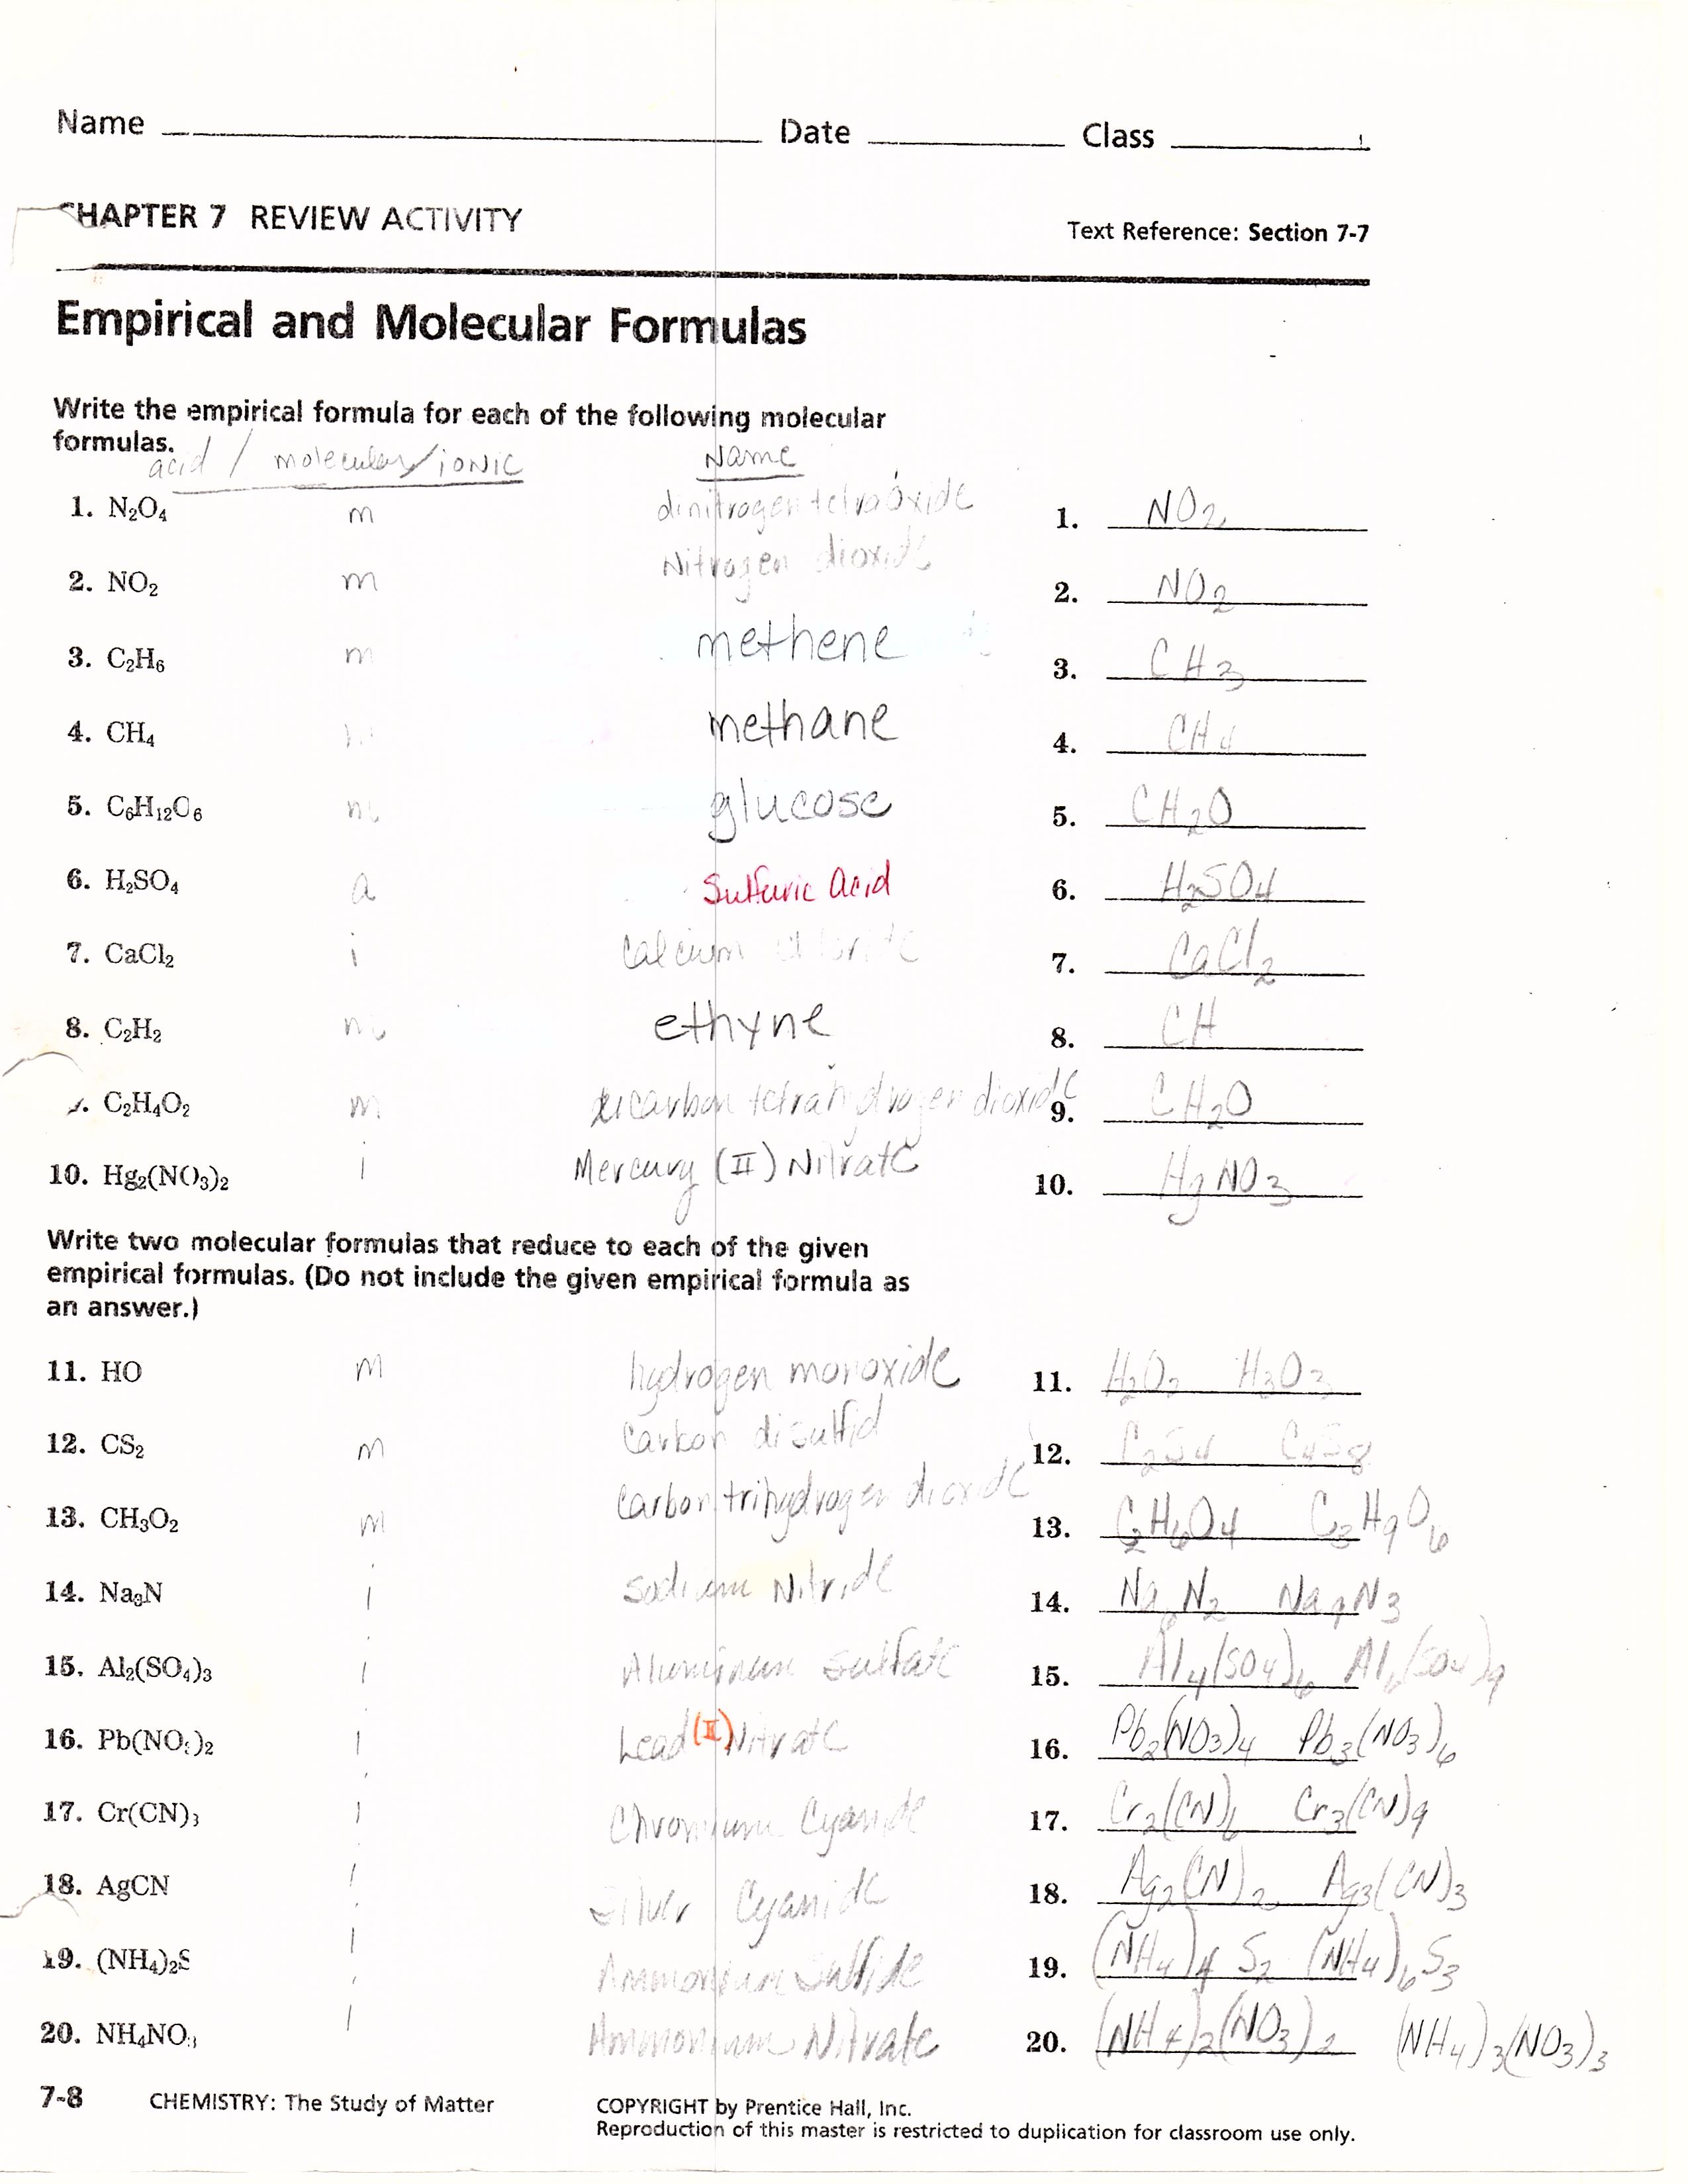 Name Date Class
CHAPTER 7 REVIEW ACTIVITY Text Reference: Section 7-7
Empirical and Molecular Formulas
Write the empirical formula for each of the following molecular
formulas.
acid / molecular / ionic Name
1. N₂O₄ m dinitrogen tetraoxide 1. NO₂
2. NO₂ m Nitrogen dioxide 2. NO₂
3. C₂H₆ m methene 3. CH₃
4. CH₄ methane 4. CH₄
5. C₆H₁₂O₆ m glucose 5. CH₂O
6. H₂SO₄ a Sulfuric Acid 6. H₂SO₄
7. CaCl₂ i Calcium 7. CaCl₂
8. C₂H₂ m ethyne 8. CH
C₂H₄O₂ m dicarbon tetrahydrogen dioxide 9. CH₂O
10. Hg₂(NO₃)₂ i Mercury (II) Nitrate 10. HgNO₃
Write two molecular formulas that reduce to each of the given
empirical formulas. (Do not include the given empirical formula as
an answer.)
11. HO m hydrogen monoxide 11. H₂O₂ H₃O₃
12. CS₂ m Carbon disulfid 12. C₂S₄ C₄S₈
13. CH₃O₂ m Carbon trihydrogen dioxide 13. C₂H₆O₄ C₃H₉O₆
14. Na₃N i Sodium Nitride 14. Na₆N₂ Na₉N₃
15. Al₂(SO₄)₃ i Aluminum Sulfate 15. Al₄(SO₄)₆ Al₆(SO₄)₉
16. Pb(NO₃)₂ i Lead (II) Nitrate 16. Pb₂(NO₃)₄ Pb₃(NO₃)₆
17. Cr(CN)₃ i Chromium Cyanide 17. Cr₂(CN)₆ Cr₃(CN)₉
18. AgCN i Silver Cyanide 18. Ag₂(CN)₂ Ag₃(CN)₃
19. (NH₄)₂S i Ammonium Sulfide 19. (NH₄)₄S₂ (NH₄)₆S₃
20. NH₄NO₃ i Ammonium Nitrate 20. (NH₄)₂(NO₃)₂ (NH₄)₃(NO₃)₃
7-8 CHEMISTRY: The Study of Matter COPYRIGHT by Prentice Hall, Inc.
Reproduction of this master is restricted to duplication for classroom use only.